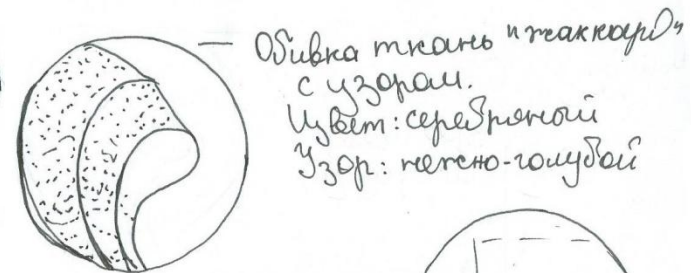 Обивка ткань "жаккард"
с узором.
Цвет: серебряный
Узор: нежно-голубой